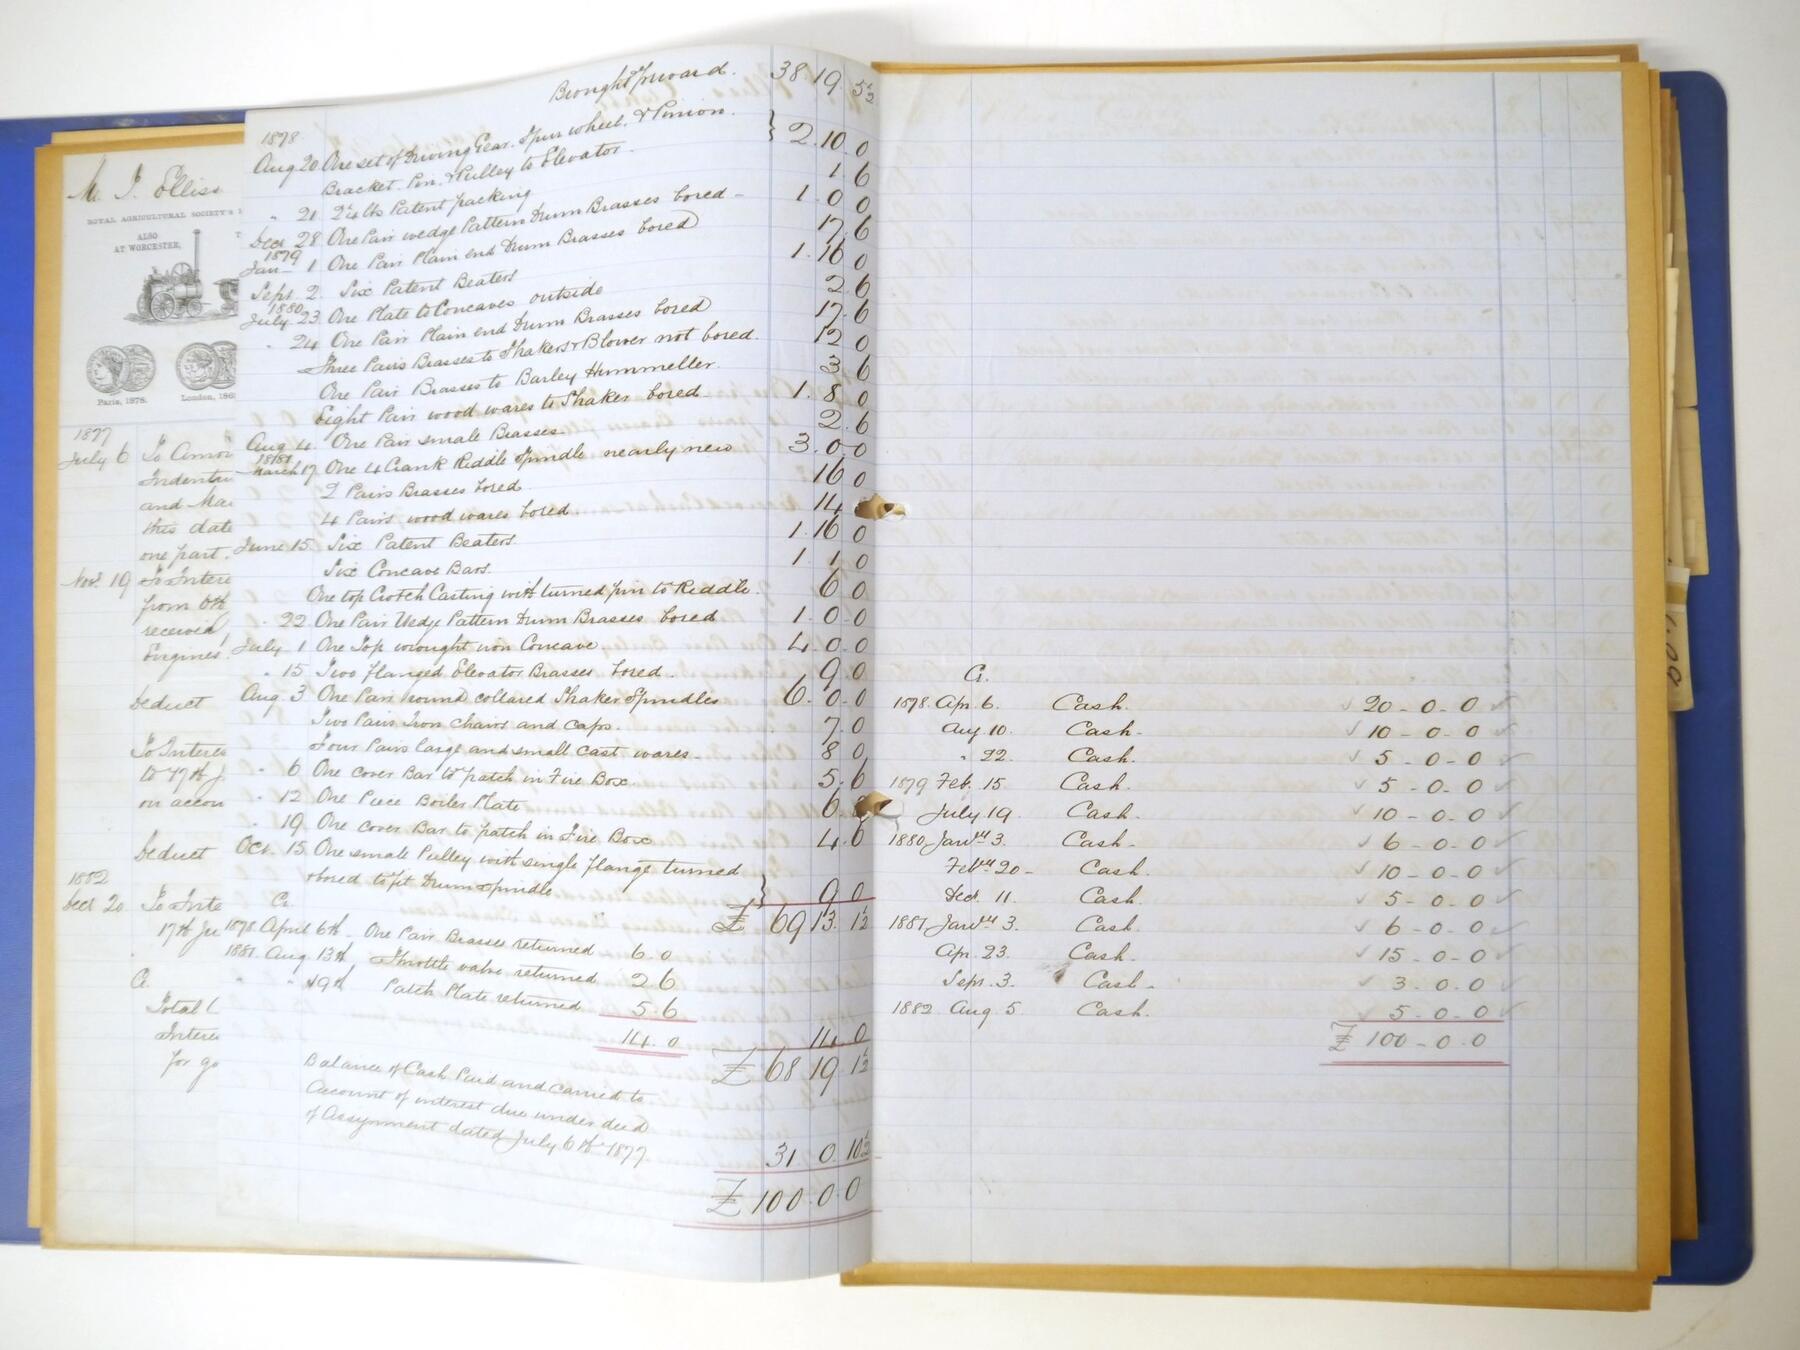 Mr. J. Ellis
ROYAL AGRICULTURAL SOCIETY'S
ALSO
AT WORCESTER,
Paris, 1878.
London, 186
1877
July 6 To Amou
Indentu
and Ma
this date
one part
Novr 19 To Intere
from 6th
received
Engines
Deduct
To Interes
to 17th J
on accou
Deduct
1882
Decr 20 To Inte
17th Ju
Cr.
Total C
Interes
for go
Brought forward. 38 19 5½
1878
Aug 20 One set of Driving Gear. Spur wheel. & Pinion.
Bracket. Pin. & Pulley to Elevator. } 2. 10. 0
" 21 2¼ lbs Patent packing 1. 6
Decr 28 One Pair wedge Pattern Drum Brasses bored - 1. 0 0
1879
Jan 1 One Pair Plain end Drum Brasses bored 17. 6
Sept. 2. Six Patent Beaters 1. 16 0
1880
July 23 One Plate to Concaves outside 2. 6
" 24 One Pair Plain end Drum Brasses bored 17. 6
Three Pairs Brasses to Shakers & Blower not bored. 12 0
One Pair Brasses to Barley Hummeller. 3 6
Eight Pair wood wares to Shaker bored - 1. 8. 0
Aug 4. One Pair small Brasses. 2. 6
1881
March 17 One 4 Crank Riddle Spindle nearly new 3. 0. 0
2 Pairs Brasses bored. 16 0
4 Pairs wood wares bored. 14
June 15. Six Patent Beaters. 1. 16 0
Six Concave Bars. 1 1 0
One top Crotch Casting with turned pin to Riddle. 6 0
" 22 One Pair Wedge Pattern Drum Brasses bored 1. 0. 0
July 1 One Top wrought iron Concave 4. 0. 0
" 15 Two flanged Elevator Brasses bored. 9 0
Aug. 3 One Pair round collared Shaker Spindles 6. 0. 0
Two Pairs Iron chairs and caps. 7. 0
Four Pairs large and small cast wares. 8 0
" 6 One cover Bar to patch in Fire Box. 5. 6
" 12 One Piece Boiler Plate 6.
" 19 One cover Bar to patch in Fire Box 4. 0
Oct. 15 One small Pulley with single flange turned
& bored to fit Drum spindle } 9 0
£ 69 13. 1½
Cr
1878. April 6th. One Pair Brasses returned 6. 0
1881. Aug 13th Throttle valve returned 2 6
" " 19th Patch Plate returned 5. 6
14. 0 14 0
£ 68 19 1½
Balance of Cash Paid and carried to
Account of interest due under deed
of Assignment dated July 6th 1877. 31. 0. 10½
£ 100. 0. 0
Cr.
1878. Apr. 6. Cash. 20 - 0 - 0
Aug 10. Cash - 10 - 0 - 0
" 22. Cash. 5 - 0 - 0
1879 Feb. 15. Cash. 5 - 0 - 0
July 19. Cash. 10 - 0 - 0
1880 Janry 3. Cash - 6 - 0 - 0
Febry 20 - Cash. 10 - 0 - 0
Decr. 11. Cash. 5 - 0 - 0
1881 Janry 3. Cash. 6 - 0 - 0
Apr. 23. Cash. 15 - 0 - 0
Sepr. 3. Cash - 3 - 0. 0
1882. Aug. 5. Cash. 5 - 0 - 0
£ 100 - 0. 0